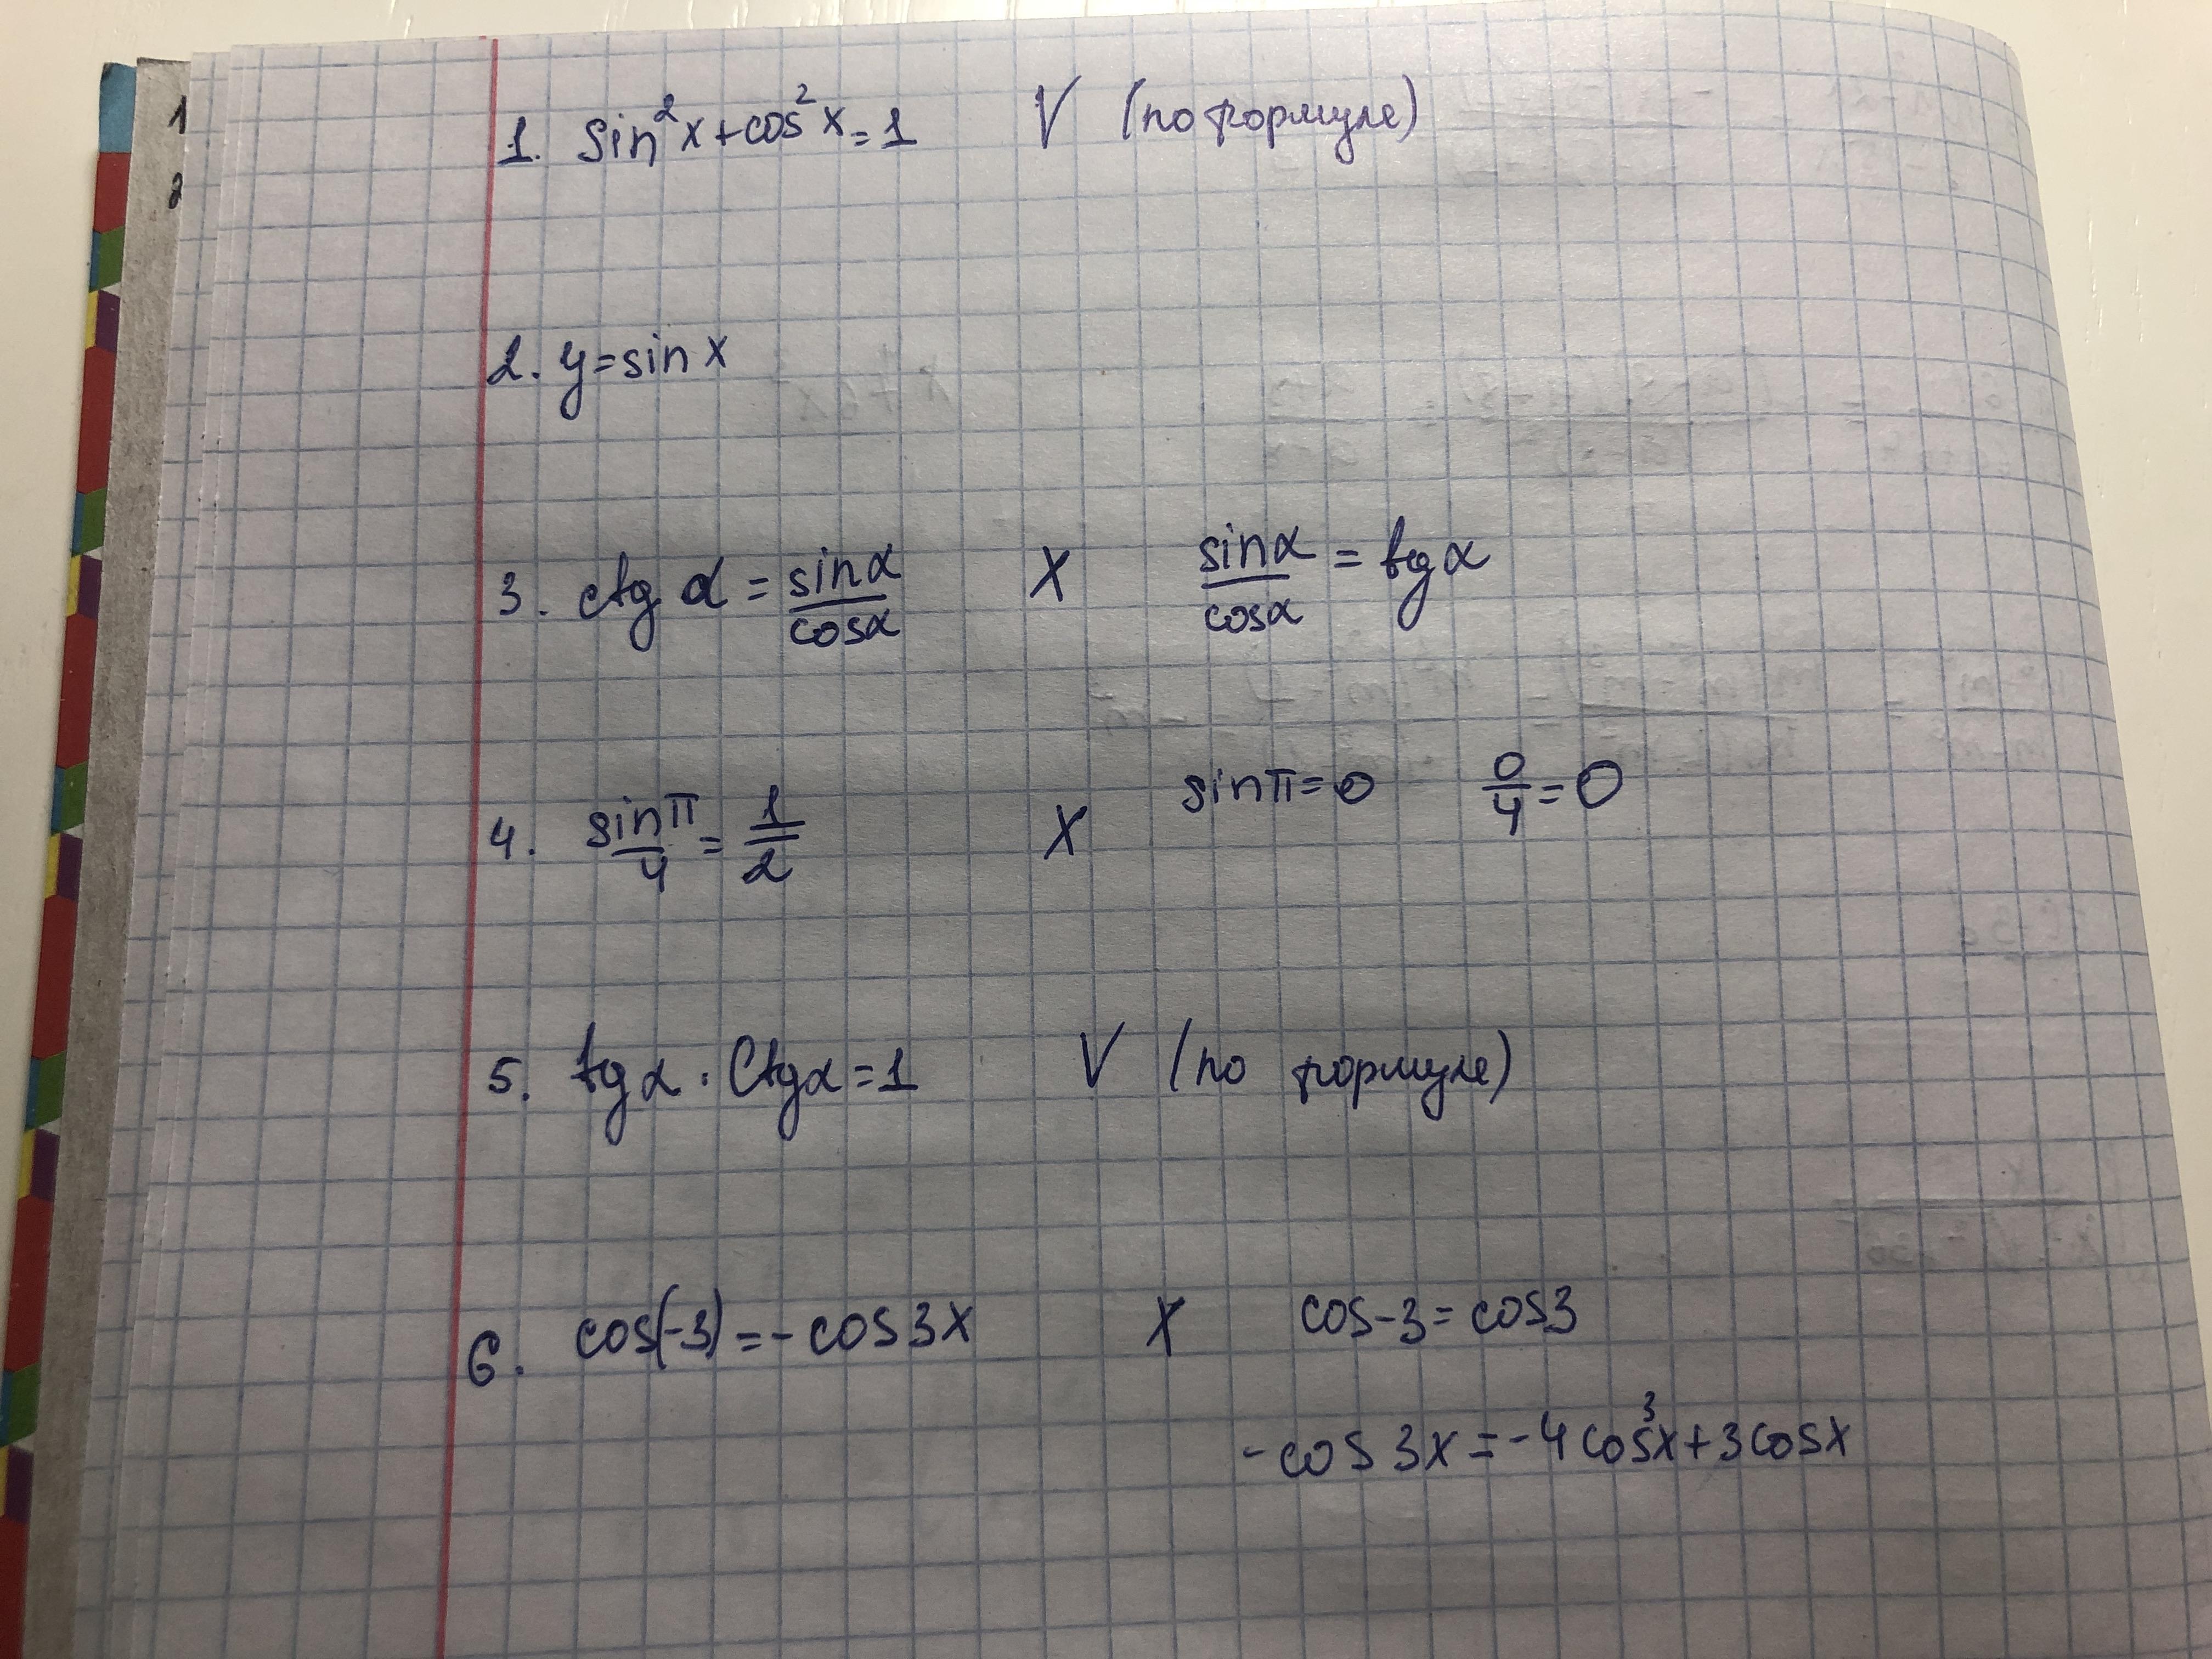 1. sin²x+cos²x=1 V (по формуле)
2. y=sin x
3. ctg α = sinα/cosα X sinα/cosα = tg α
4. sinπ/4 = 1/2 X sinπ=0 0/4=0
5. tgα · Ctgα=1 V (по формуле)
6. cos(-3)=-cos3x X cos-3=cos3
-cos3x=-4cos³x+3cosx
1
2